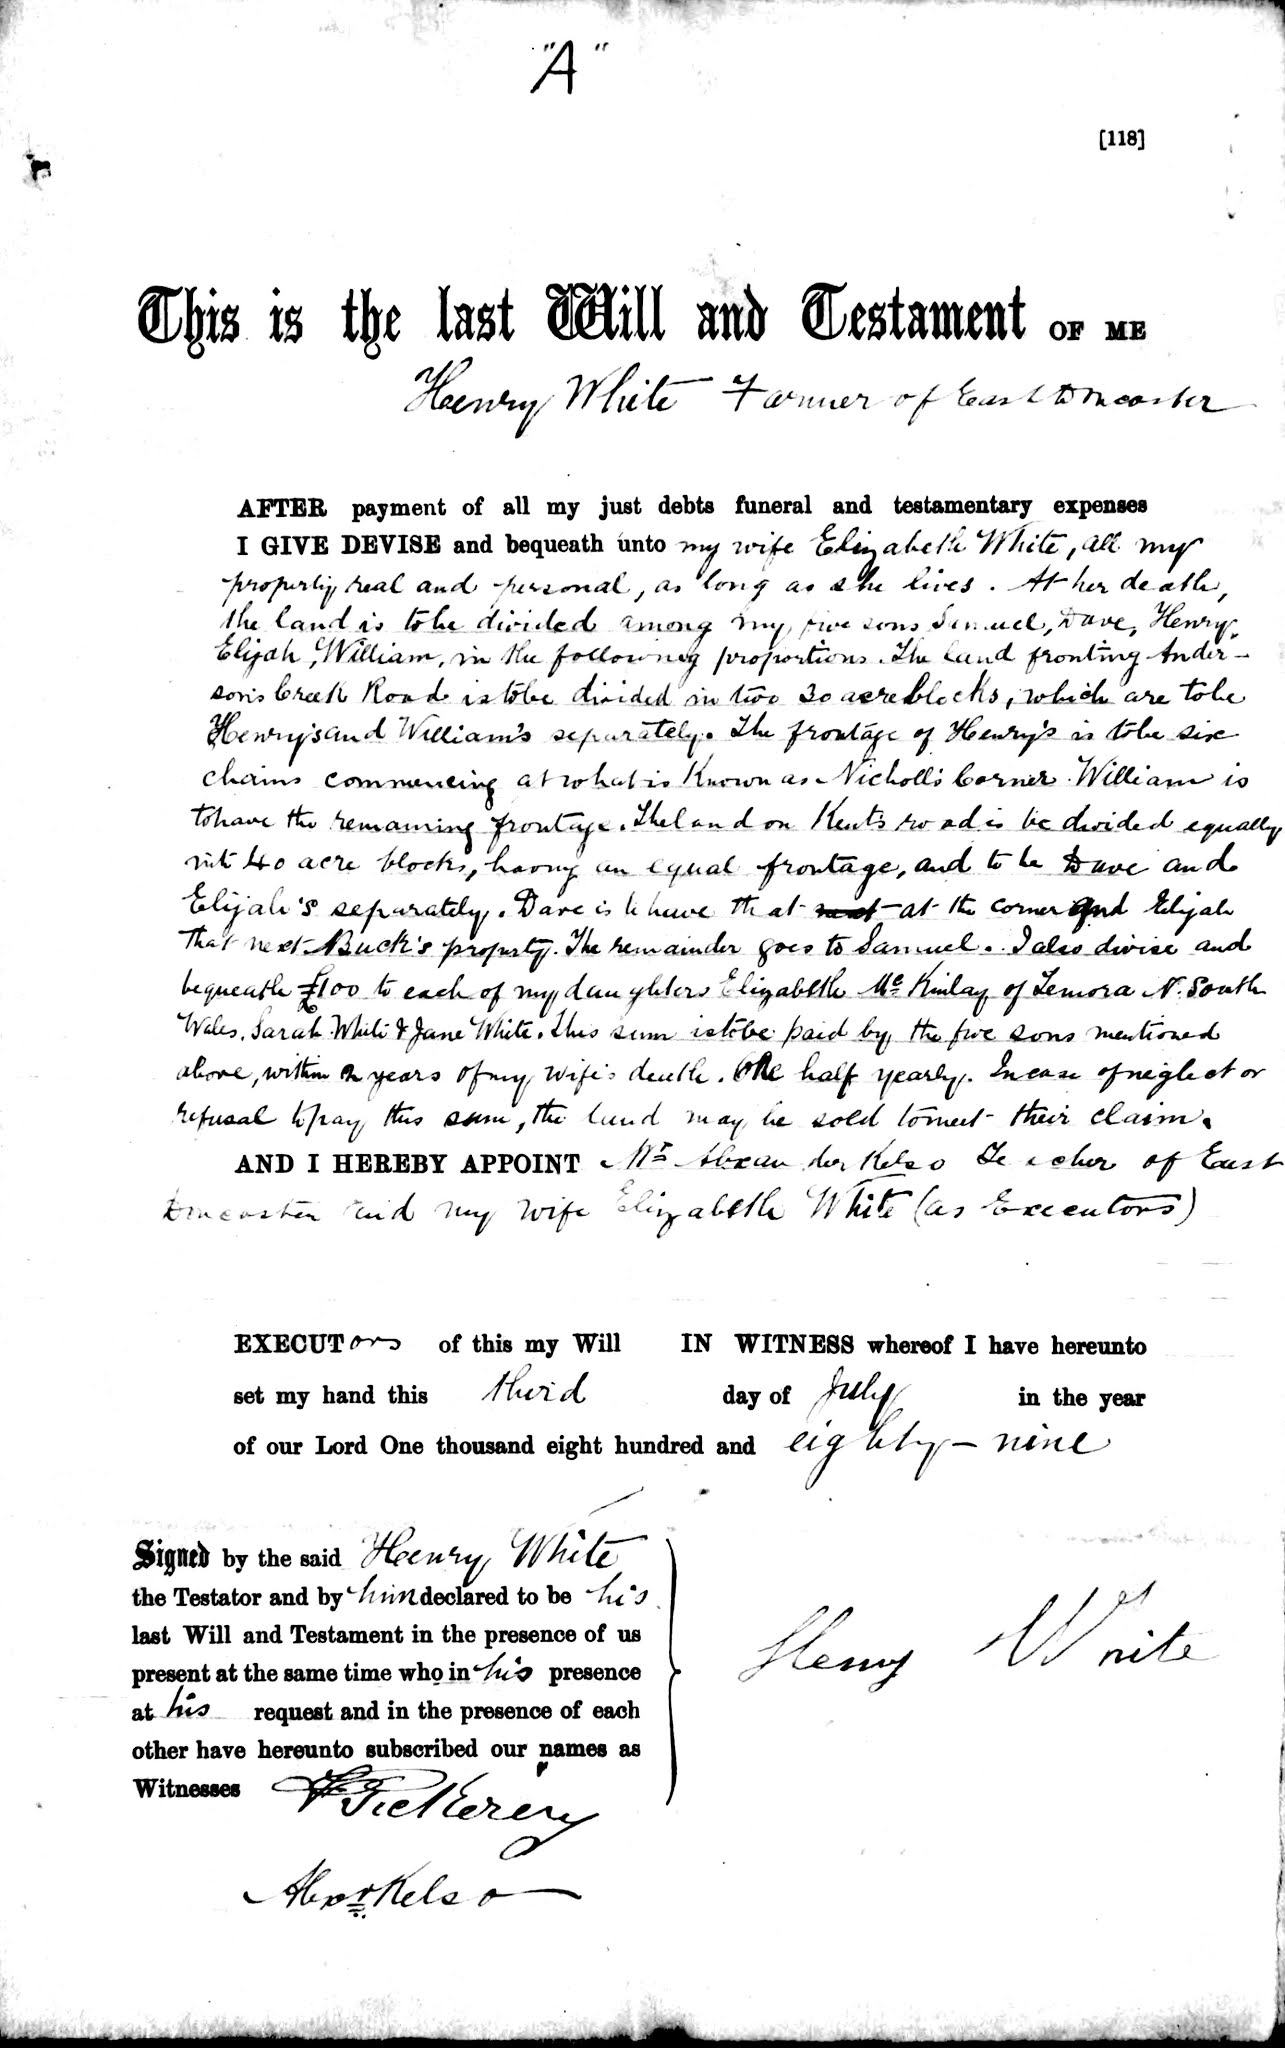 "A"
[118]
This is the last Will and Testament OF ME
Henry White Farmer of East Doncaster
AFTER payment of all my just debts funeral and testamentary expenses
I GIVE DEVISE and bequeath unto my wife Elizabeth White, all my
property real and personal, as long as she lives. At her death,
the land is to be divided among my five sons Samuel, Dave, Henry,
Elijah, William, in the following proportions. The land fronting Ander-
son's Creek Road is to be divided in two 30 acre blocks, which are to be
Henry's and William's separately. The frontage of Henry's is to be six
chains commencing at what is known as Nicholl's Corner. William is
to have the remaining frontage. The land on Kent's road is be divided equally
into 40 acre blocks, having an equal frontage, and to be Dave and
Elijah's separately. Dave is to have that next at the corner and Elijah
that next Buck's property. The remainder goes to Samuel. I also divise and
bequeath £100 to each of my daughters Elizabeth McKinlay of Temora N. South
Wales, Sarah White & Jane White. This sum is to be paid by the five sons mentioned
above, within 2 years of my wife's death. One half yearly. In case of neglect or
refusal to pay this sum, the land may be sold to meet their claim.
AND I HEREBY APPOINT Mr Alexander Kelso Teacher of East
Doncaster and my wife Elizabeth White (as Executors)
EXECUTors of this my Will IN WITNESS whereof I have hereunto
set my hand this third day of July in the year
of our Lord One thousand eight hundred and eighty-nine
Signed by the said Henry White
the Testator and by him declared to be his
last Will and Testament in the presence of us
present at the same time who in his presence
at his request and in the presence of each
other have hereunto subscribed our names as
Witnesses Pickering
Henry White
Alexr Kelso